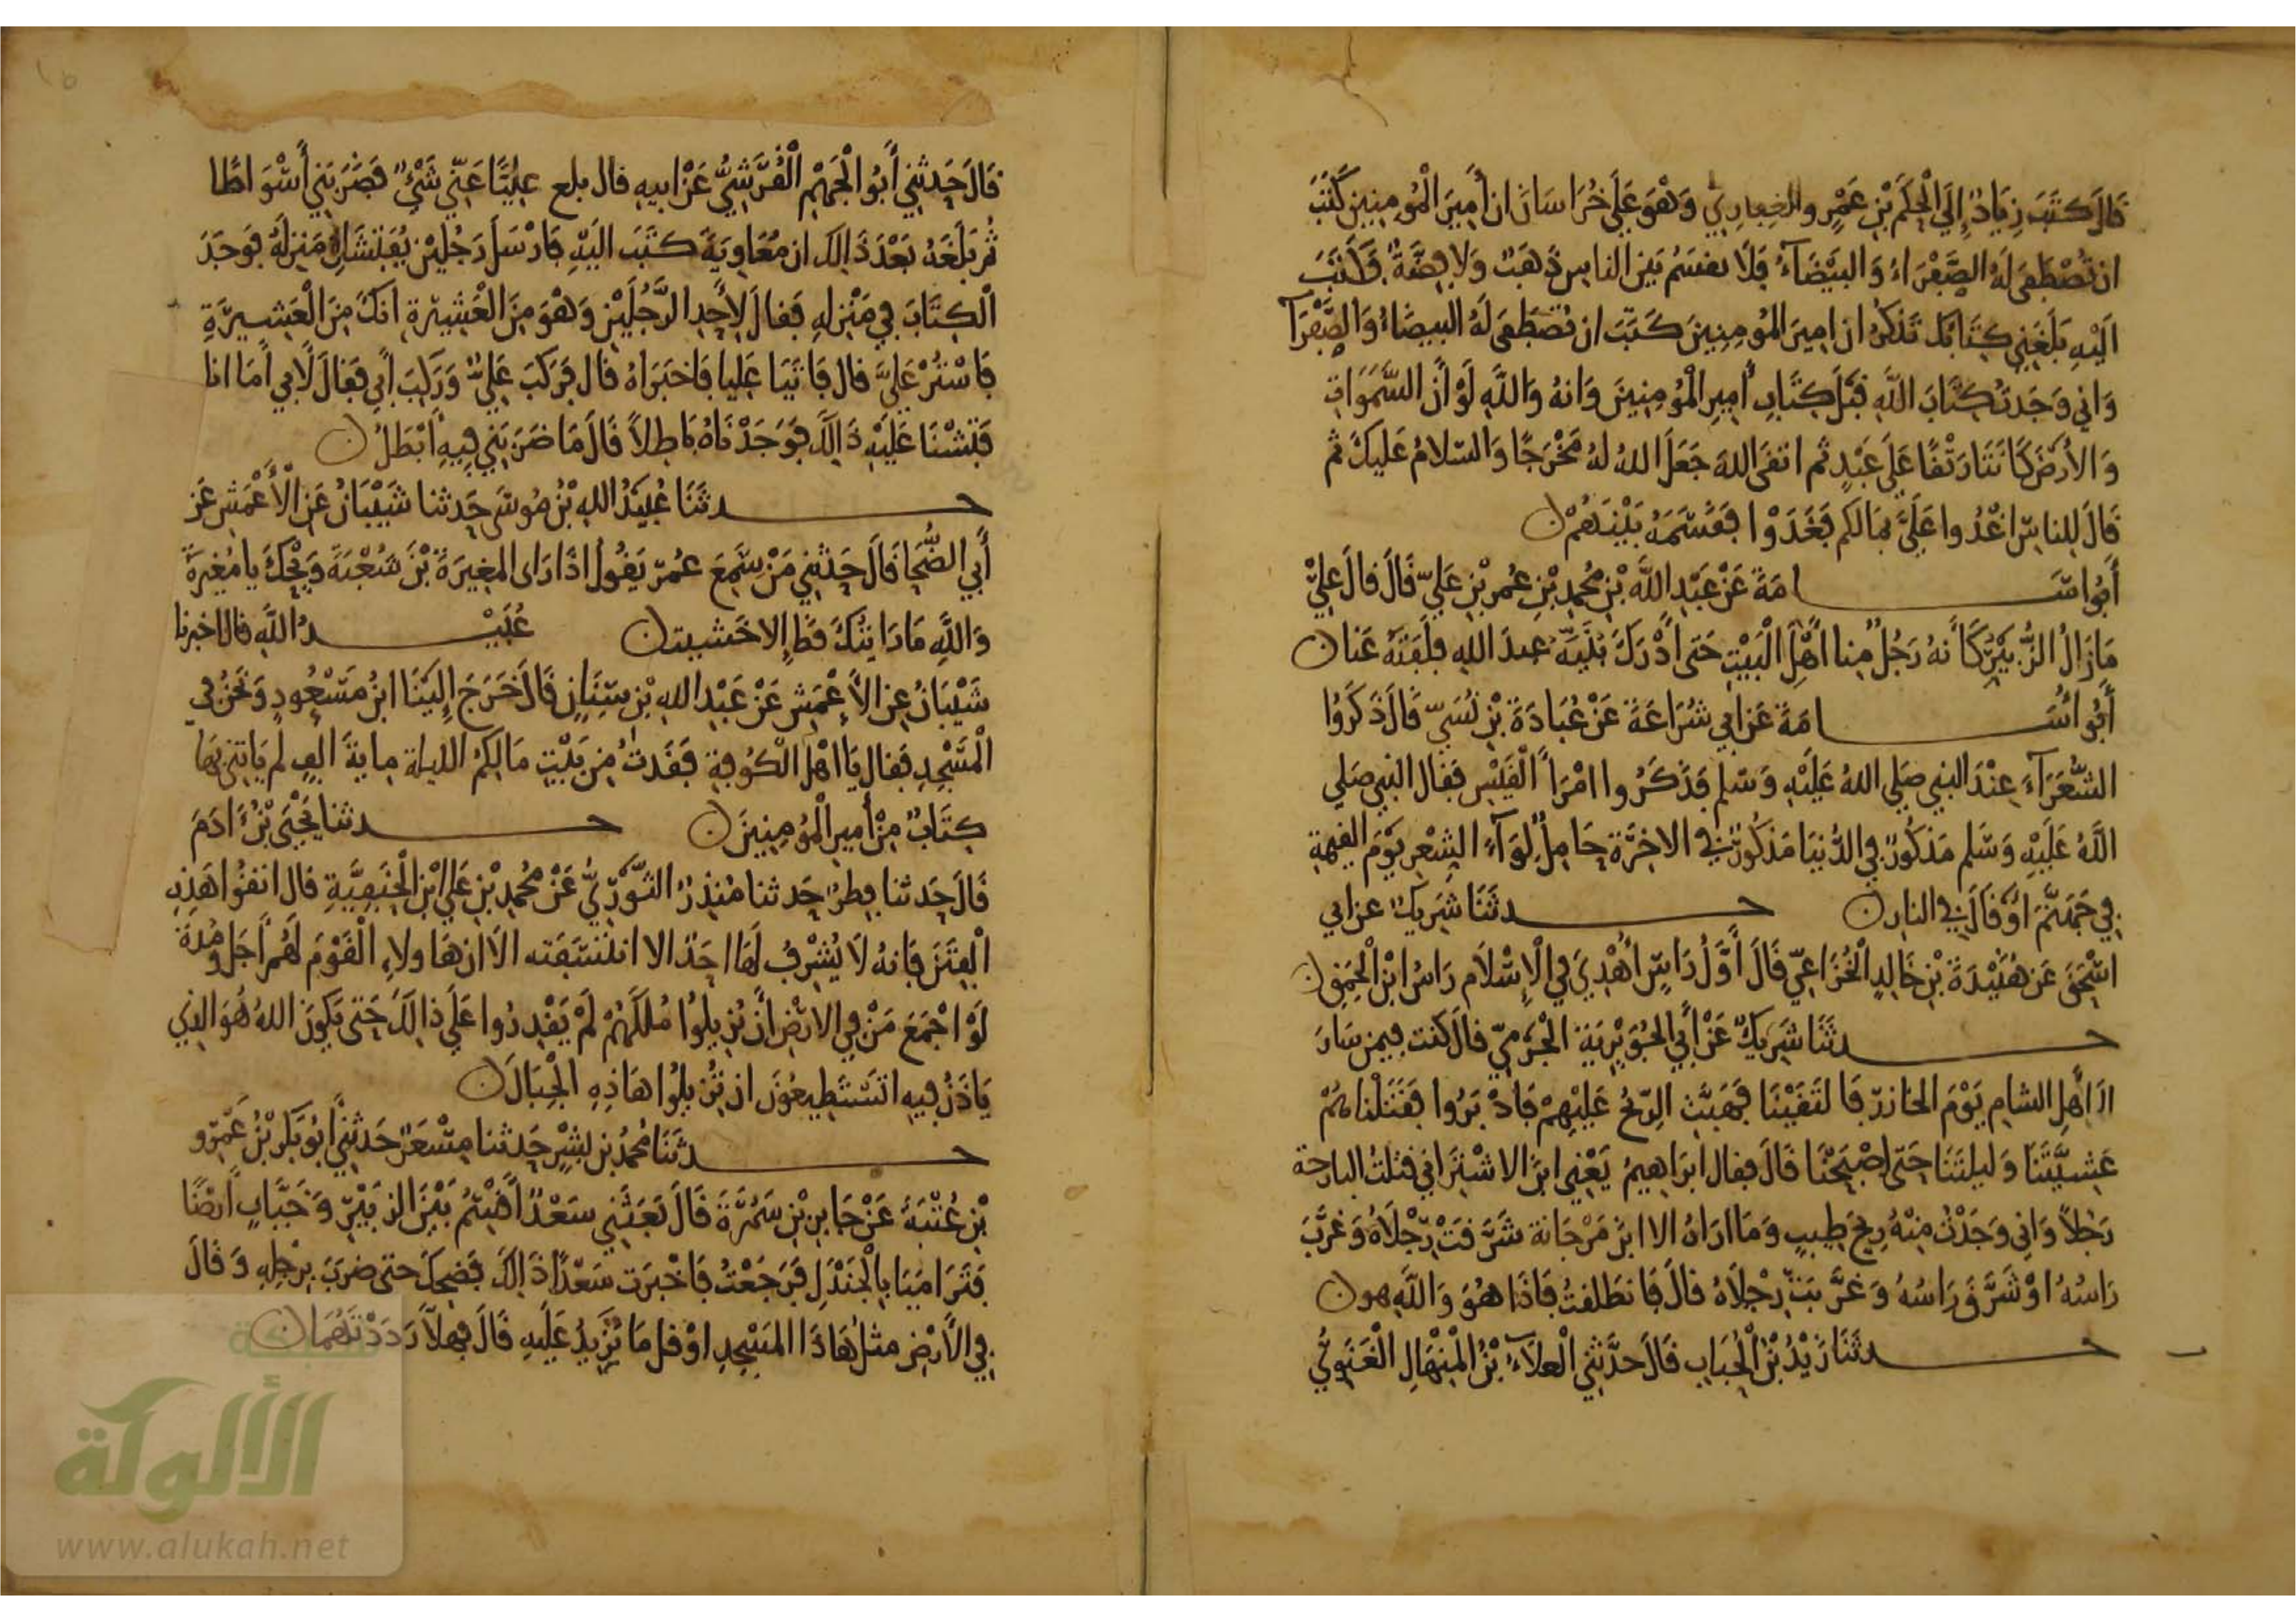 قَالَ كَتَبَ زِيَادٌ إِلَى الْحَكَمِ بْنِ عَمْرٍو الْغِفَارِيِّ وَهْوَ عَلَى خُرَاسَانَ ان أَمِيرَ الْمُومِنِينَ كَتَبَ
ان تُصْطَفَى لَهُ الصَّفْرَاءُ وَالبَيْضَآءُ فَلَا تقسَمُ بَيْنَ الناسِ ذَهَبٌ وَلا فِضَّةٌ فَكَتَبَ
الَيْهِ بَلَغَنِي كِتَابُكَ تَذكُرُ ان امِيرَ المُومِنِينَ كَتَبَ ان تُصْطَفَى لَهُ البيضَاءُ وَالصَّفْرَآءُ
وَانِي وَجَدتُ كِتَابَ اللَّهِ قَبْلَ كِتَابِ أَمِيرِ الْمُومِنِينَ وَانهُ وَاللَّهِ لَوْ أَنَّ السَّمَوَاتِ
وَالأَرْضَ كَانَتَا رَتْقًا عَلَى عَبْدٍ ثم اتقَى اللهَ جَعَلَ اللهُ لهُ مَخْرَجًا وَالسلامُ عَليكَ ثم
قَالَ لِلناسِ اغْدُوا عَلَيَّ بِمَالِكم فَغَدَوْا فَقَسَمَهُ بَيْنَهُمْ ن
أَبُو اسَامَةَ عَنْ عَبْدِ اللَّهِ بْنِ مُحمدِ بْنِ عُمر بْنِ عَلِيّ قَالَ قالَ عَلِيٌّ
مَا زَالَ الزُّبَيْرُ كَأَنهُ رَجُلٌ مِنا اهْلَ الْبَيْتِ حَتى ادْرَكَ بُنَيُّهُ عبدُ اللهِ فلَفَتَهُ عَنا ن
أَبُو اسَامَةَ عَن ابِي شُرَاعَةَ عَنْ عُبَادَةَ بْنِ نُسَيّ قَالَ ذَكَرُوا
الشُّعَرَآءَ عِنْدَ النبِي صَلى اللهُ عَلَيْهِ وَسَلم فَذَكَرُوا امْرَأَ الْقَيْسِ فَقَالَ النبِي صَلى
اللَّهُ عَلَيْهِ وَسَلم مَذكُورٌ فِي الدُّنيَا مَذكُورٌ فِي الاخِرَةِ حَامِلُ لِوَآءِ الشِعْرِ يَوْمَ القِيمةِ
فِي جَهَنَّمَ اوْ قَالَ فِي النارِ ن حدثَنَا شَرِيكٌ عن ابي
اسْحَقَ عَن هُنَيْدَةَ بْنِ خَالِدٍ الْخُزَاعِيّ قَالَ أَوَّلُ رَاسٍ أُهْدِيَ فِي الْإِسْلَامِ رَاسُ ابْنِ الْحَمِقِ ن
حدثَنَا شَرِيكٌ عَنْ أَبِي الْجُوَيْرِيَةِ الْجَرْمِيّ قالَ كنت فيمن سَارَ
الَى أَهْلِ الشامِ يَوْمَ الخازر فَالتَقَيْنَا فَهَبَّتِ الرِّيحُ عَلَيْهِمْ فَادْبَرُوا فَقَتَلْنَاهُمْ
عَشِيَّتَنَا وَلَيلَتَنَا حَتى اصْبَحْنَا قَالَ فقال ابرَاهِيمُ يَعْنِي ابنَ الاشْتَرِ انِي قتلتُ البارحة
رَجُلاً وَانِي وَجَدْتُ مِنْهُ رِيحَ طِيبٍ وَمَا ارَاهُ الا ابنَ مَرْجَانة شَرَّقَتْ رِجْلَاهُ وَغَرَّبَ
رَاسُهُ اوْ شَرَّقَ رَاسُهُ وَغَرَّبَتْ رِجْلَاهُ قالَ فَانطَلَقتُ فَاذَا هُوَ وَاللَّهِ هو ن
حدثَنَا زَيْدُ بْنُ الْحُبَابِ قَالَ حَدَّثَنِي الْعلَآءُ بْنُ الْمِنْهَالِ الْغَنَوِيُّ
قَالَ حَدثنِي أَبُو الْجَهْمِ الْقُرَشِيُّ عَنْ ابيهِ قال بلغ عَلِيًّا عَنِّي شَيْءٌ فَضَرَبَنِي أَسْوَاطًا
ثُم بَلَغَهُ بَعْدَ ذَالِكَ ان مُعَاوِيَةَ كَتَبَ الَيْهِ فَارْسَلَ رَجُلَيْنِ يُفَتِّشَانِ مَنزِلَهُ فوَجَدَ
الْكِتَابَ فِي مَنْزِلِهِ فَقالَ لِأَحَدِ الرَّجُلَيْنِ وَهْوَ مِنَ الْعَشِيرَةِ انَكَ مِنَ الْعَشِيرَةِ
فَاسْتُرْ عَلَيَّ قال فَاتَيَا عَلِيا فَاخبَرَاهُ قال فَرَكبَ عَلِيٌّ وَرَكِبَ أَبِي فَقالَ لأَبِي أَمَا انا
فَتشْنَا عَلَيْهِ ذَالِكَ فَوَجَدْنَاهُ بَاطِلاً قَالَ مَا ضَرَبتَنِي فِيهِ أَبْطَلُ ن
حدثَنَا عُبَيْدُ اللهِ بْنُ مُوسَى حَدثنا شَيْبَانُ عَنِ الْأَعْمَشِ عَن
أَبِي الضُّحَا قَالَ حَدثَنِي مَنْ سَمِعَ عُمرَ يَقُولُ اذَا رَاى المغِيرَةَ بْنَ شُعْبَةَ وَيْحَكَ يا مُغِيرَةُ
وَاللَّهِ مَا رَايتُكَ قَط إِلا خَشيت ن عُبَيْدُ اللَّهِ قال اخبرنا
شَيْبَانُ عنِ الأَعْمَشِ عَنْ عَبْدِ اللهِ بْنِ سِنَانٍ قَالَ خَرَجَ إِلَيْنَا ابنُ مَسْعُودٍ وَنَحْنُ فِي
الْمَسْجِدِ فَقال يَا اهْلَ الْكُوفةِ فُقدَتْ مِن بَيْتِ مَالِكُمُ الليلةَ مايةَ الفٍ لم يَاتِنِي بهَا
كِتَابٌ مِنْ أَمِيرِ الْمُومِنِينَ ن حدثنا يَحْيَى بْنُ ءَادَمَ
قَالَ حَدثنا فِطرٌ حَدثنا مُنذِرٌ الثَّوْرِيُّ عَنْ مُحمدِ بْنِ عَلي ابْنِ الْحَنَفِيَّةِ قال اتقُوا هَذِهِ
الْفِتَنَ فَانهُ لَا يُشْرِفُ لَهَا احَدٌ الا انتَسَفَته الَا ان هَاولَاءِ الْقَوْمَ لَهُم أَجَل وَمُدةٌ
لَوْ اجْمَعَ مَنْ فِي الارْضِ أَنْ يُزِيلُوا مُلكَهُمْ لَمْ يَقْدِرُوا عَلَى ذالِكَ حَتى يَكُونَ اللهُ هُوَ الذِي
يَاذَنُ فِيهِ اتَسْتَطِيعُونَ ان تُزِيلُوا هَاذِهِ الْجِبَالَ ن
حدثَنَا مُحمدُ بْن بِشْرٍ حَدثنا مِسْعَرٌ حَدثَنِي أَبُو بَكر بْنُ عَمْرِو
بْنِ عُتْبَةَ عَنْ جَابِرِ بْنِ سَمُرَةَ قَالَ بَعَثَنِي سَعْدٌ أَقْسِمُ بَيْنَ الزبَيْرِ وَخَبَّابٍ أَرْضًا
فَتَرَامَيَا بِالْجَنْدَلِ فَرَجَعْتُ فَاخْبرَت سَعْدًا ذَالِكَ فَضحِكَ حتى ضربَ بِرِجْلِهِ وَقَالَ
فِي الأَرْضِ مثلُ هَاذَا الْمَسْجِدِ اوْ قل مَا يَزِيدُ عَلَيهِ قَالَ فهلَّا رَدَدْتَهُمَا ن
شبكة
الألوكة
www.alukah.net